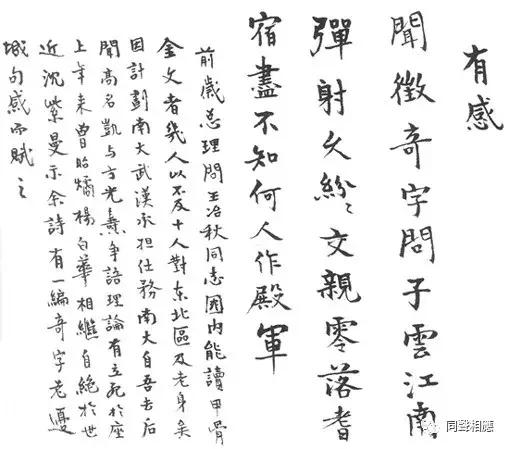 有感
聞徵奇字問子雲江南
彈射久紛〻文親零落耆
宿盡不知何人作殿軍
前歲总理問王冶秋同志国内能讀甲骨
金文者幾人以不及十人對东北區及老身矣
因计劃南大武漢承担任務南大自吾去后
聞高名凱与方光燾爭語理論有立死於座
上年来曾昭燏楊白華相繼自絕於世
近沈紫曼示余詩有一編奇字老邊
城句感而賦之
同聲相應